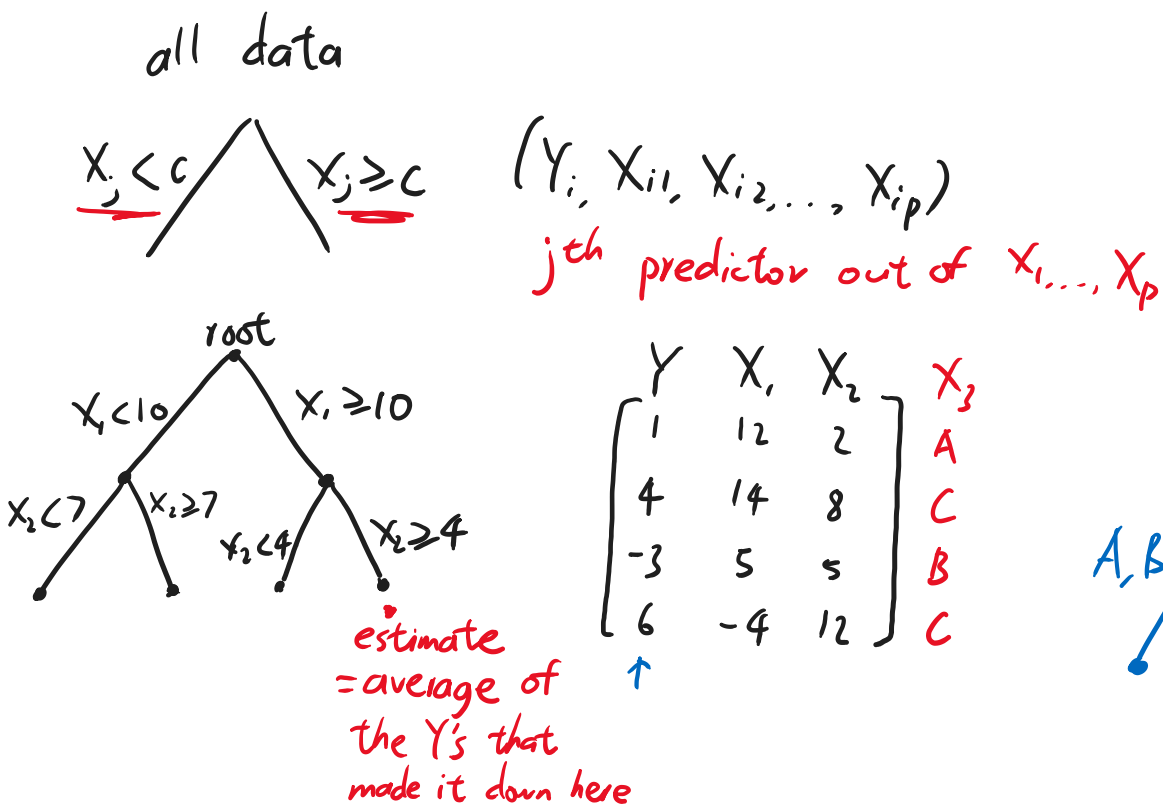 all data
X_j < c
X_j ≥ c
(Y_i, X_i1, X_i2, ..., X_ip)
jth predictor out of X_1, ..., X_p
root
X_1 < 10
X_1 ≥ 10
X_2 < 7
X_2 ≥ 7
X_2 < 4
X_2 ≥ 4
estimate
= average of
the Y's that
made it down here
Y X_1 X_2 X_3
1 12 2 A
4 14 8 C
-3 5 5 B
6 -4 12 C
↑
A, B